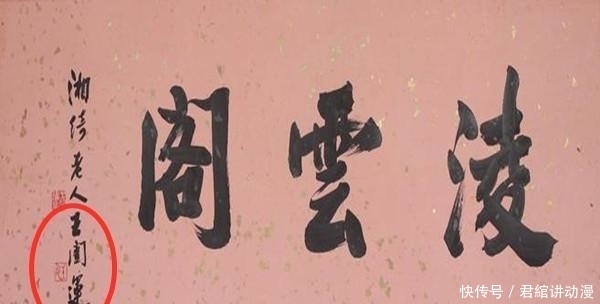 凌雲閣
湘綺老人王闓運
快传号／君綰讲动漫